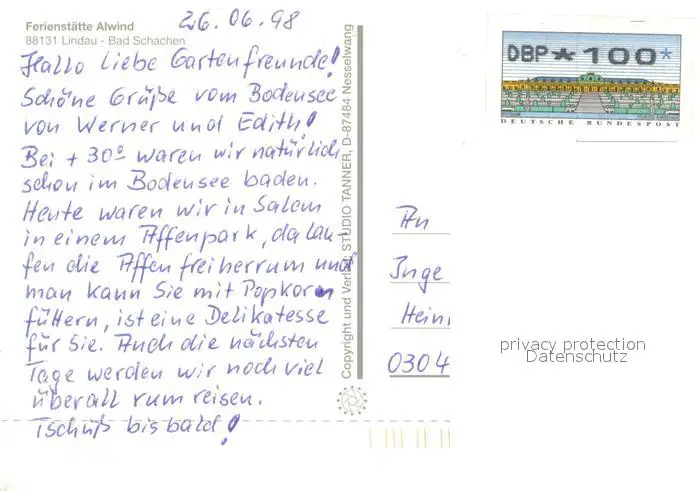 26.06.98
Ferienstätte Alwind
88131 Lindau - Bad Schachen
Hallo liebe Gartenfreunde!
Schöne Grüße vom Bodensee
von Werner und Edith!
Bei + 30° waren wir natürlich
schon im Bodensee baden.
Heute waren wir in Salem
in einem Affenpark, da lau-
fen die Affen frei herrum und
man kann Sie mit Popkorn
füttern, ist eine Delikatesse
für Sie. Auch die nächsten
Tage werden wir noch viel
überall rum reisen.
Tschüß bis bald!
Copyright und Verlag: STUDIO TANNER, D-87484 Nesselwang
DBP * 100 *
DEUTSCHE BUNDESPOST
An
Inge
Hein
0304
privacy protection
Datenschutz